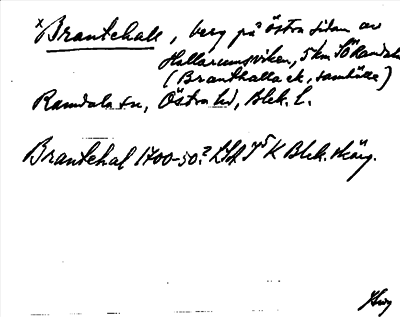 x Brantehall, berg på östra sidan av
Hallarumsviken, 5 km SÖ Ramdala
(Branthalla ek, samhälle)
Ramdala sn, Östra hd, Blek. l.
Brantehal 1700-50? K Blek. skärg.